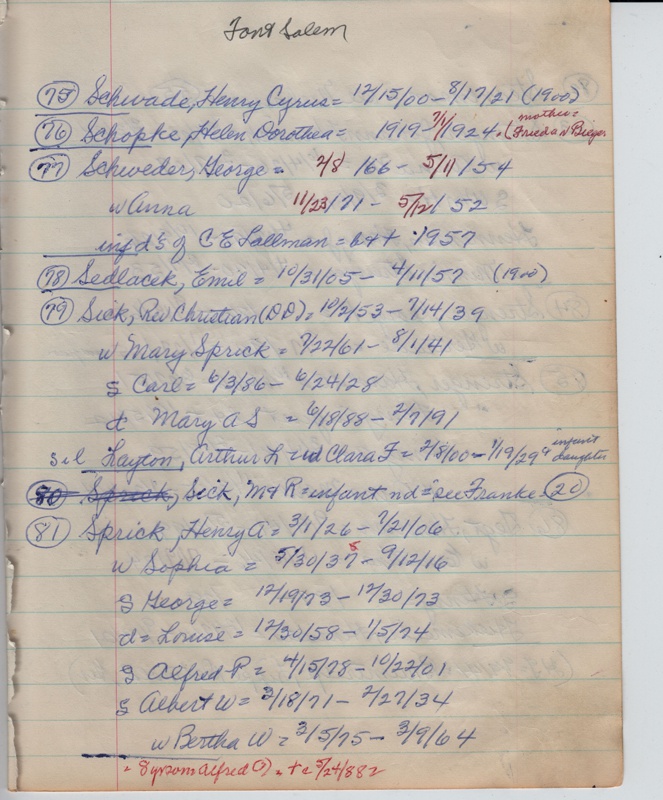 Font Salem
75 Schwade, Henry Cyrus = 12/15/00 - 8/17/21 (1900)
76 Schopke, Helen Dorothea = 1919 - 7/1/1924. (mother = Frieda N
77 Schweder, George = 2/8/66 - 5/11/54
w Anna 11/23/71 - 5/12/52
inf d's of C E Sallman = b & + 1957
78 Sedlacek, Emil = 10/31/05 - 4/11/57 (1900)
79 Sick, Rev Christian (DD) = 10/2/53 - 7/14/39
w Mary Sprick = 7/22/61 - 8/1/41
s Carl = 6/3/86 - 6/24/28
d Mary A S = 6/18/88 - 2/7/91
s il Layton, Arthur L = w Clara F = 2/8/00 - 1/19/29 & infant daughter
80 Sprick, Sick, M & R = infant nd = see Franke 20
81 Sprick, Henry A = 3/1/26 - 7/21/06
w Sophia = 5/30/35 - 9/12/16
s George = 12/19/73 - 12/30/73
d = Louise = 12/30/58 - 1/5/74
s Alfred P = 4/15/78 - 10/22/01
s Albert W = 3/18/71 - 2/27/34
w Bertha W = 3/5/75 - 3/9/64
= 8 yr son Alfred = + 5/24/882